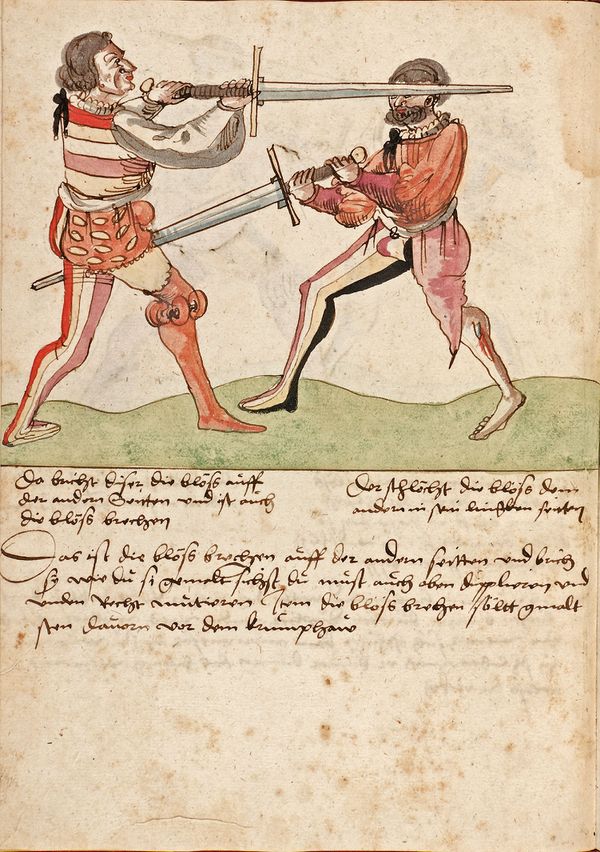 Da bricht diser die blöss auff
der andern Seitten und ist auch
die blöss brechen
Der schlöcht die blöss dem
andern in sein lincken seiten
Das ist die blöss brechen auff der andern seitten und brich
wie du si gemalt sichst du must auch oben duplieren und
unden Recht mutieren Item die blöss brechen sölt gmalt
sten davorn vor dem krumphaw